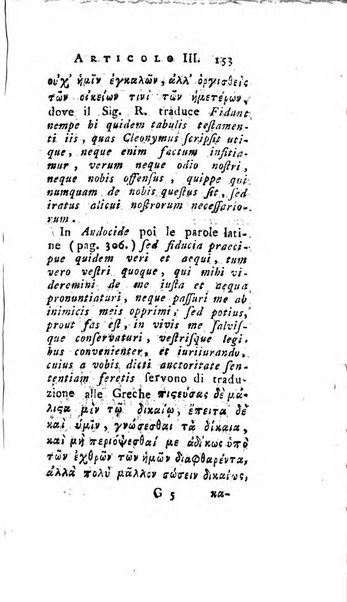 ARTICOLO III. 153
οὐχ' ἡμῖν ἐγκαλῶν, ἀλλ' ὀργισθεὶς
τῶν οἰκείων τινὶ τῶν ἡμετέρων,
dove il Sig. R. traduce Fidunt
nempe hi quidem tabulis teſtamen-
ti iis, quas Cleonymus ſcripſit uti-
que, neque enim factum inſitia-
mur, verum neque odio noſtri,
neque nobis offenſus, quippe qui
numquam de nobis queſtus ſit, ſed
iratus alicui noſtrorum neceſſario-
rum.
In Andocide poi le parole lati-
ne (pag. 306.) ſed fiducia praeci-
pue quidem veri et aequi, tum
vero veſtri quoque, qui mihi vi-
deremini de me iuſta et aequa
pronuntiaturi, neque paſſuri me ab
inimicis meis opprimi; ſed potius,
prout fas eſt, in vivis me ſalviſ-
que conſervaturi, veſtriſque legi-
bus convenienter, et iuriiurando,
cuius a vobis dicti auctoritate ſen-
tentiam feretis ſervono di tradu-
zione alle Greche πιςεύσας δὲ μά-
λιςα μὲν τῷ δικαίῳ, ἔπειτα δὲ
καὶ ὑμῖν, γνώσεσθαι τὰ δίκαια,
καὶ μὴ περιόψεσθαί με ἀδίκως ὑπὸ
τῶν ἐχθρῶν τῶν ἡμῶν διαφθαρέντα,
ἀλλὰ πολὺ μᾶλλον σώσειν δικαίως,
G 5 κα-